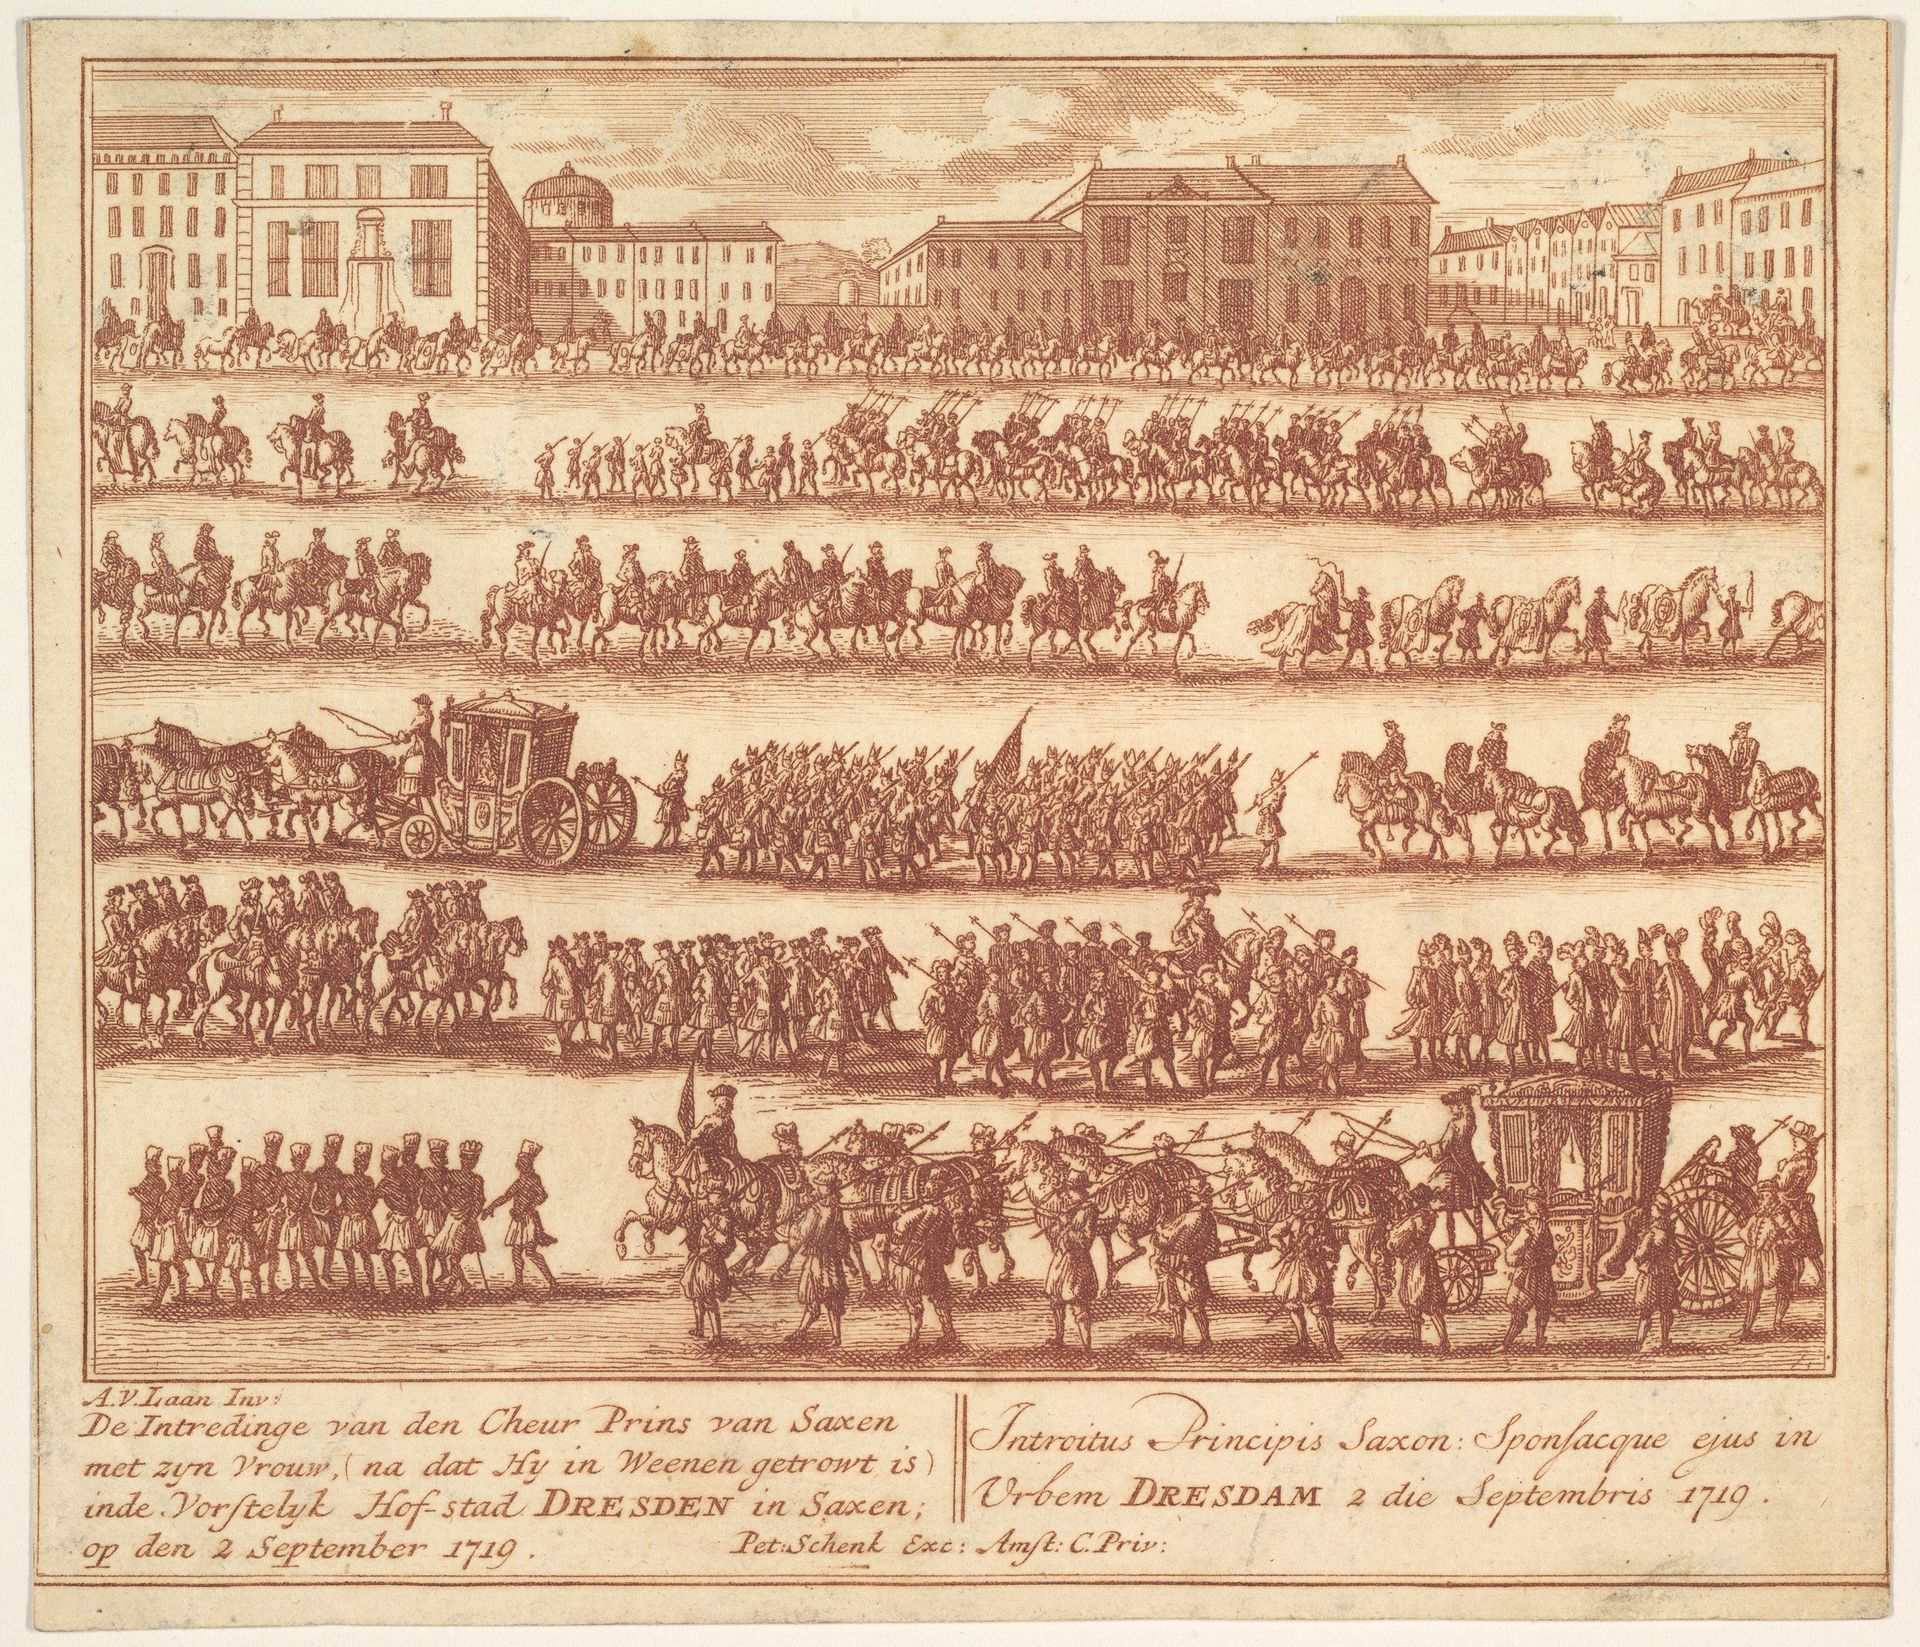 A.V. Laan Inv:
De Intredinge van den Cheur Prins van Saxen
met zyn Vrouw, ( na dat Hy in Weenen getrowt is )
inde Vorstelyk Hof-stad DRESDEN in Saxen;
op den 2 September 1719.
Introitus Principis Saxon: Sponsacque ejus in
Urbem DRESDAM 2 die Septembris 1719.
Pet: Schenk Exc: Amst: C. Priv: